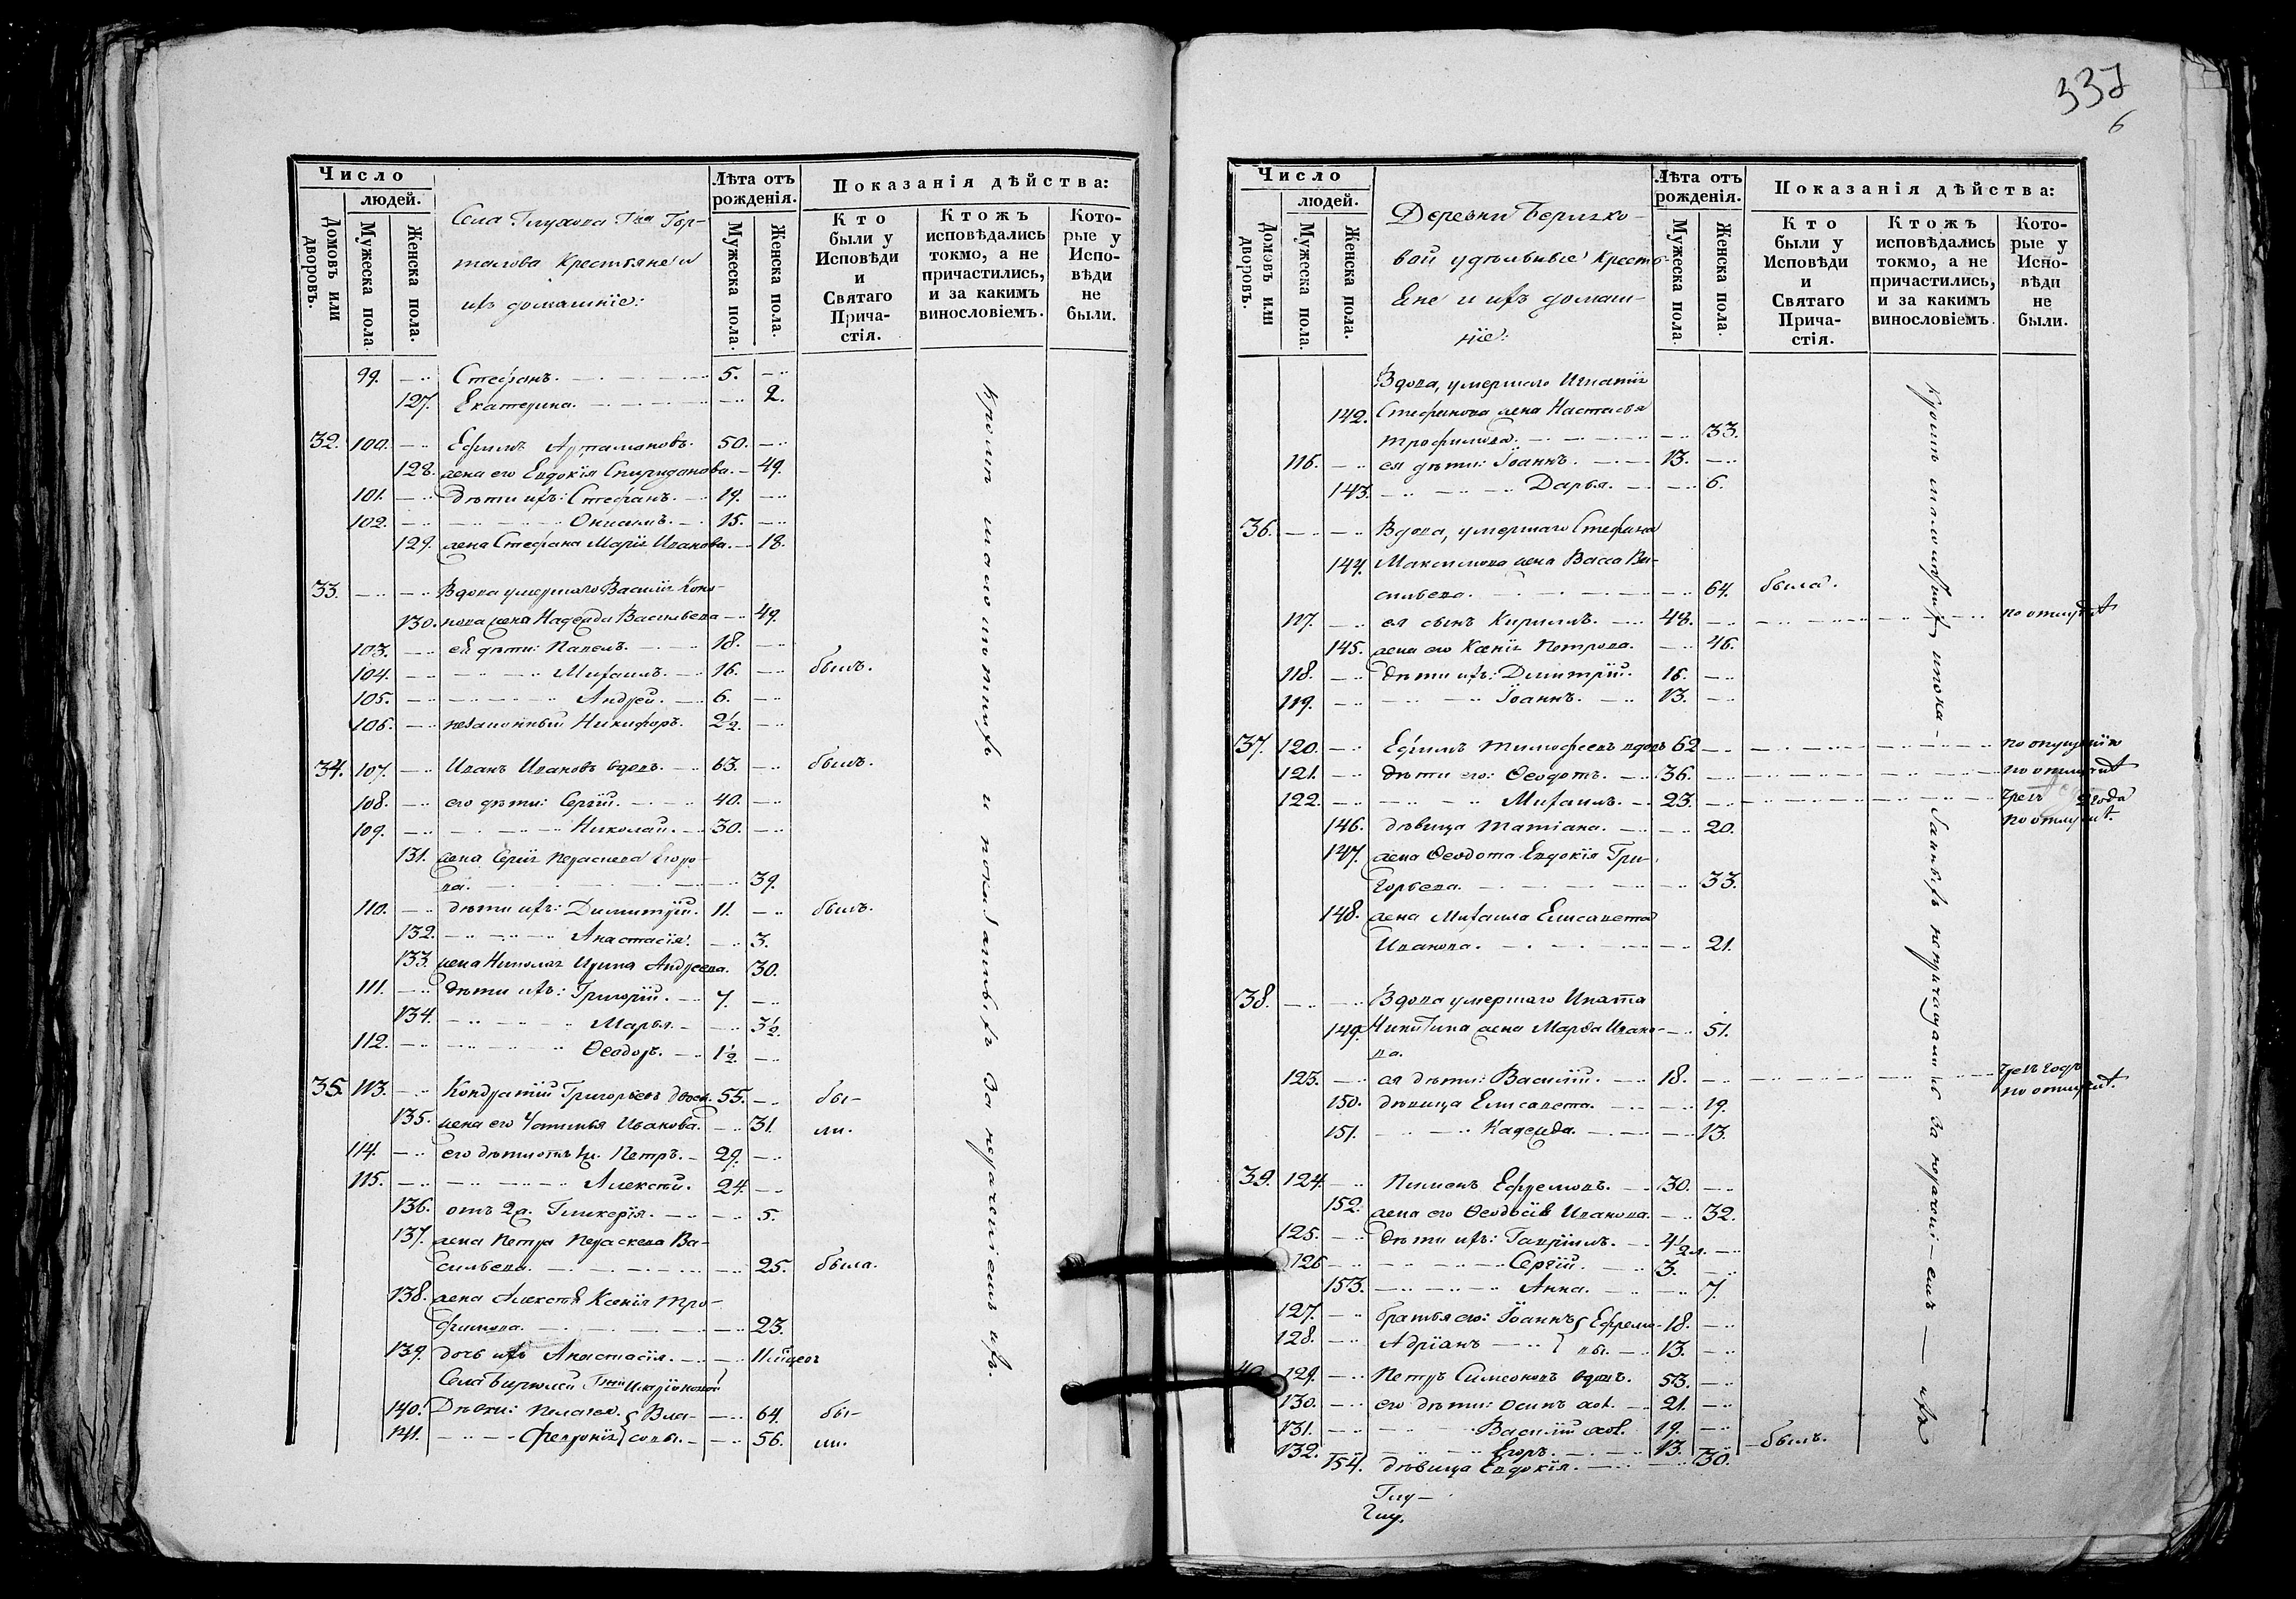 337
6
Число
людей.
Домовъ или дворовъ.
Мужеска пола.
Женска пола.
Села Глухова Гна Гор-
талова Крестьяне и
ихъ домашніе:
Лѣта отъ рожденія.
Мужеска пола.
Женска пола.
Показанія дѣйства:
Кто были у Исповѣди и Святаго Прича-стія.
Ктожъ исповѣдались токмо, а не причастились, и за какимъ винословіемъ.
Кото-рые у Испо-вѣди не были.
99. Стефанъ. 5.
127. Екатерина. 2.
32. 100. Ефимъ Артамоновъ. 50.
128. жена его Евдокія Спиридонова. 49.
101. дѣти ихъ: Стефанъ. 19.
102. 15.
129. жена Стефана Марія Иванова. 18.
33. Вдова умершаго Василія Коно-
130. нова жена Надежда Васильева 49.
103. ея дѣти: Павелъ. 18.
104. Михаилъ. 16. былъ.
105. Андрей. 6.
106. незаконный Никифоръ. 2½.
34. 107. Иванъ Ивановъ вдовъ. 63. былъ.
108. его дѣти: Сергій. 40.
109. Николай. 30.
131. жена Сергія Параскева Егоро-
ва. 39.
110. дѣти ихъ: Димитрій. 11. былъ.
132. Анастасія. 3.
133. жена Николая Ирина Андреева. 30.
111. дѣти ихъ: Григорій. 7.
134. Марья. 3½.
112. Ѳеодоръ. 1½.
35. 113. Кондратій Григорьевъ 55. бы-
135. жена его Иванова. 31. ли.
114. его дѣти отъ Петръ. 29.
115. Алексѣй. 24.
136. отъ 2й. Гликерія. 5.
137. жена Петра Параскева Ва-
сильева. 25. была.
138. жена Алексѣя Ксенія Тро-
фимова. 23.
139. дочь ихъ Анастасія.
Села
140. Дѣвки: Пелагея. Вла- 64. бы-
141. Февронія совы. 56. ли.
кромѣ малолѣтнихъ и показанныхъ за нераченіемъ ихъ.
Число
людей.
Домовъ или дворовъ.
Мужеска пола.
Женска пола.
Деревни Беризко-
вой удѣльные Кресть-
яне и ихъ домаш-
ніе:
Лѣта отъ рожденія.
Мужеска пола.
Женска пола.
Показанія дѣйства:
Кто были у Исповѣди и Святаго Прича-стія.
Ктожъ исповѣдались токмо, а не причастились, и за какимъ винословіемъ.
Кото-рые у Испо-вѣди не были.
Вдова, умершаго Игнатія
142. Стефанова жена Настасья
Трофимова. 33.
116. ея дѣти: Іоаннъ. 13.
143. Дарья. 6.
36. Вдова, умершаго Стефана
144. Максимова жена Васса Ва-
сильева. 64. была.
117. ея сынъ Кириллъ. 48. по отлучкѣ
145. жена его Ксенія Петрова. 46.
118. дѣти ихъ: Димитрій. 16.
119. Іоаннъ. 13.
37. 120. Ефимъ Тимофеевъ вдовъ 62 по опущенію
121. дѣти его: Ѳеодотъ. 36. по отлучкѣ
122. Михаилъ. 23. чрезъ 2 года
по отлучкѣ.
146. дѣвица Татіана. 20.
147. жена Ѳеодота Евдокія Гри-
горьева. 33.
148. жена Михаила Елисавета
Иванова. 21.
38. Вдова умершаго Ипата
149. Никитина жена Марѳа Ивано- 51.
ва.
123. ея дѣти: Василій. 18. чрезъ годъ
по отлучкѣ.
150. дѣвица Елисавета. 19.
151. Надежда. 13.
39. 124. Пименъ Ефремовъ. 30.
152. жена его Ѳеодосія Иванова. 32.
125. дѣти ихъ: Гавріилъ. 4½
126 Сергій. 3.
153. Анна. 7.
127. братья его: Іоаннъ Ефремо- 18.
128. Адріанъ вы. 13.
40. 129. Петръ Симеоновъ вдовъ. 53.
130. его дѣти: Осипъ хол. 21.
131. Василій хол. 19.
132. Егоръ. 13. былъ.
154. дѣвица Евдокія. 30.
Глу-